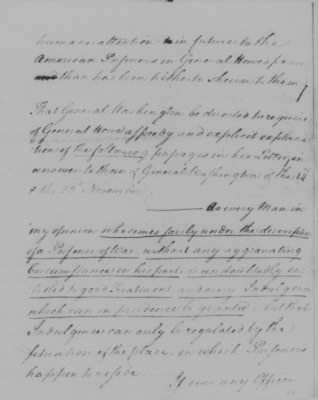 humane attention in future to the
American Prisoners in General Howe's power
than has been hitherto shown to them
That General Washington be directed to require
of General Howe a speedy and explicit explana
tion of the following passages in his Letter, in
answer to those of General Washington of the 14
& the 23d November
as every Man in
my opinion who comes fairly under the description
of a Prisoner of War, without any aggravating
Circumstance on his part, is undoubtedly en
titled to good Treatment and every Indulgence
which can in prudence be granted; but that
Indulgence can only be regulated by the
situation of the place, in which Prisoners
happen to reside.
If ever any Officer